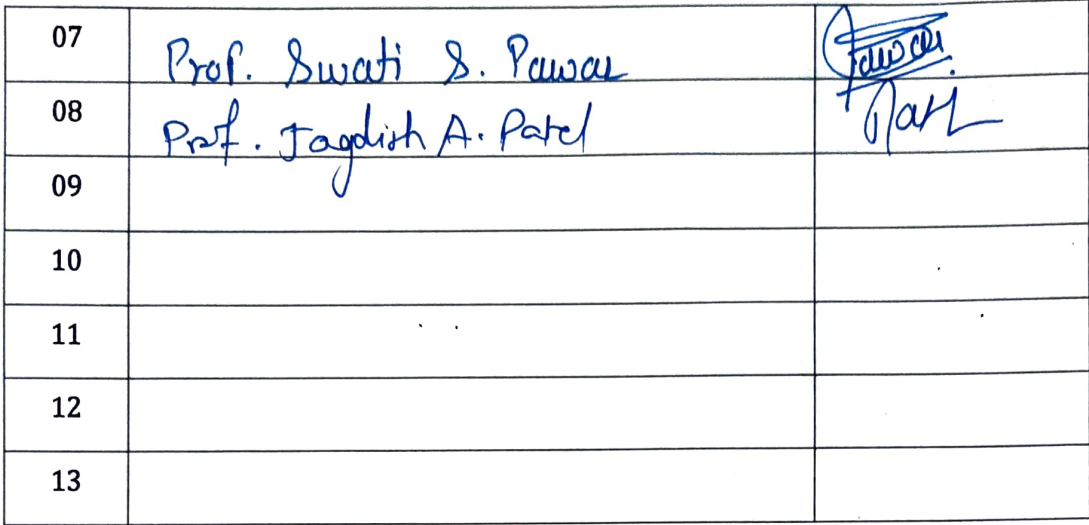 07 Prof. Swati S. Pawar Pawar
08 Prof. Jagdish A. Patel
09
10
11
12
13